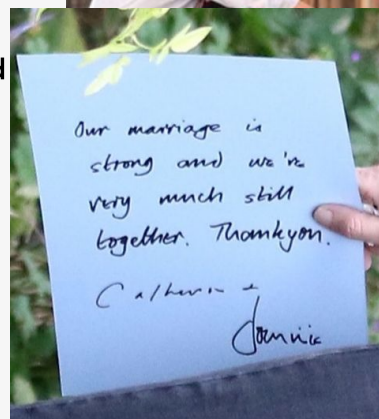 d
Our marriage is
strong and we've
very much still
together. Thankyou.
Catherine +
Dominic